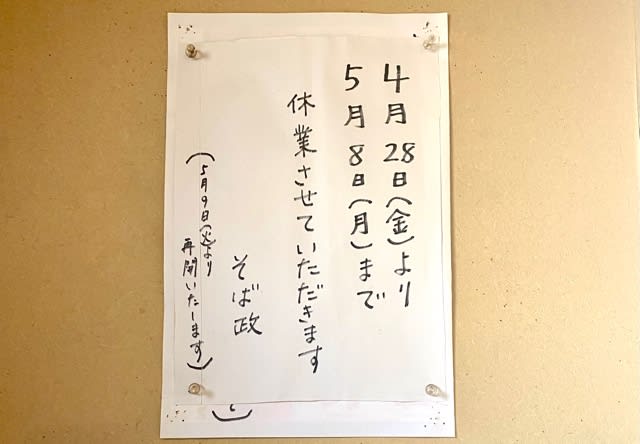 4月28日(金)より
5月8日(月)まで
休業させていただきます
そば政
(5月9日(火)より
再開いたします)